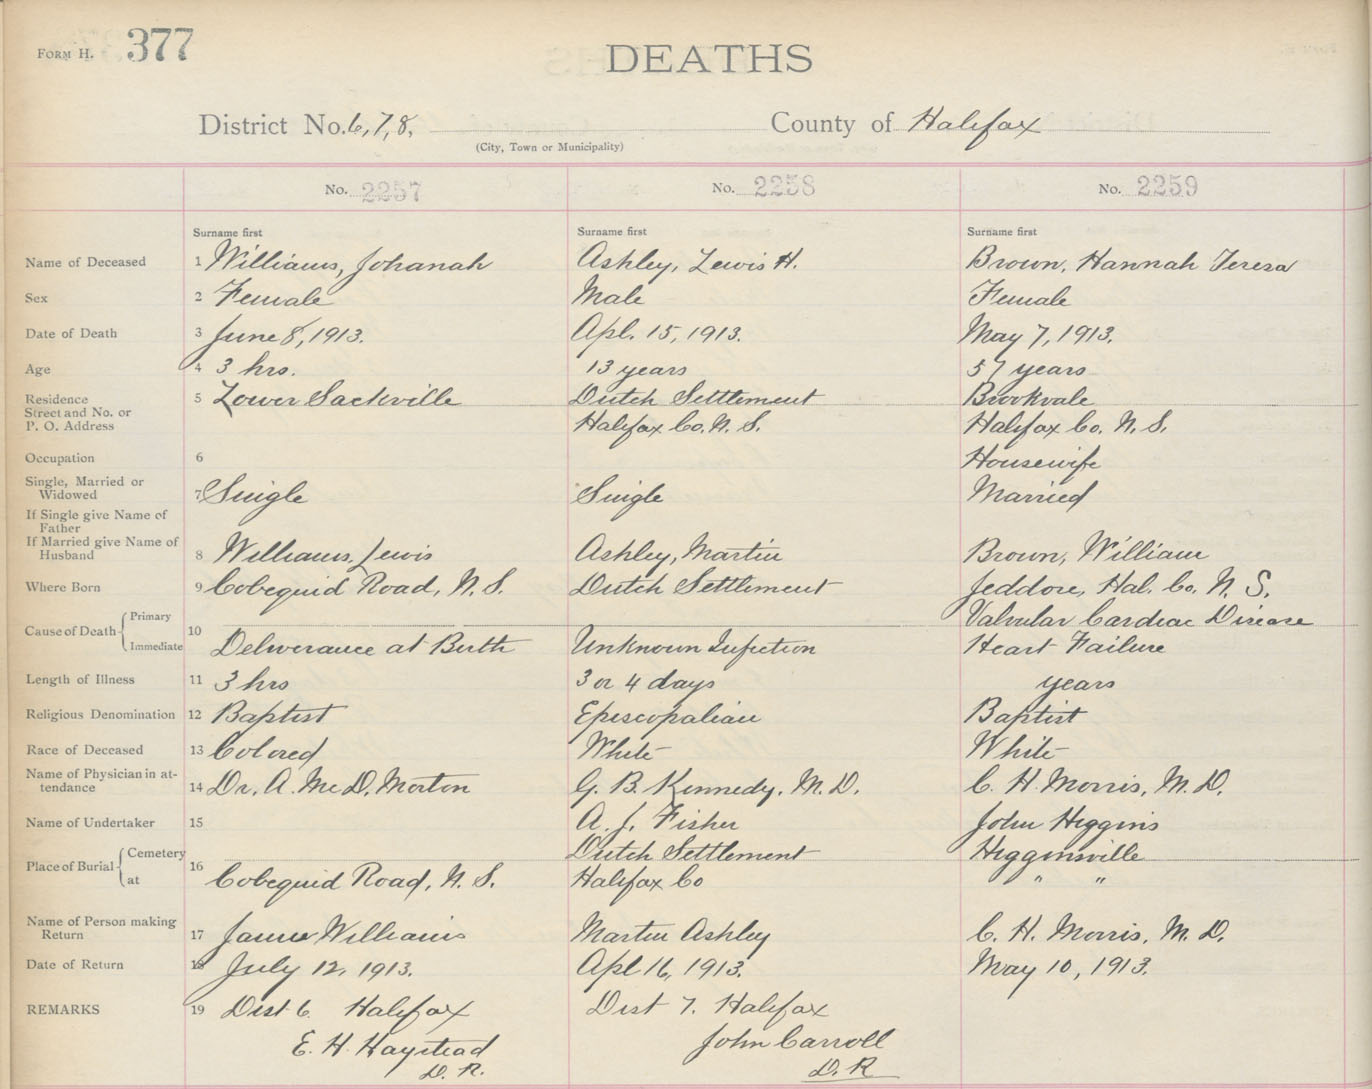 FORM H. 377
DEATHS
District No. 6, 7, 8, County of Halifax
(City, Town or Municipality)
No. 2257 No. 2258 No. 2259
Surname first Surname first Surname first
Name of Deceased 1 Williams, Johanah Ashley, Lewis H. Brown, Hannah Teresa
Sex 2 Female Male Female
Date of Death 3 June 8, 1913. Apl. 15, 1913. May 7, 1913.
Age 4 3 hrs. 13 years 57 years
Residence 5 Lower Sackville Dutch Settlement Brookvale
Street and No. or
P. O. Address Halifax Co. N. S. Halifax Co. N. S.
Occupation 6 Housewife
Single, Married or
Widowed 7 Single Single Married
If Single give Name of
Father
If Married give Name of
Husband 8 Williams, Lewis Ashley, Martin Brown, William
Where Born 9 Cobequid Road, N. S. Dutch Settlement Jeddore, Hal. Co. N. S.
Primary Valvular Cardiac Disease
Cause of Death 10
Immediate Deliverance at Birth Unknown Infection Heart Failure
Length of Illness 11 3 hrs 3 or 4 days years
Religious Denomination 12 Baptist Episcopalian Baptist
Race of Deceased 13 Colored White White
Name of Physician in at-
tendance 14 Dr. A. McD. Morton G. B. Kennedy, M. D. C. H. Morris, M. D.
Name of Undertaker 15 A. J. Fisher John Higgins
Cemetery Dutch Settlement Higginsville
Place of Burial 16
at Cobequid Road, N. S. Halifax Co " "
Name of Person making
Return 17 James Williams Martin Ashley C. H. Morris, M. D.
Date of Return 18 July 12, 1913. Apl 16, 1913. May 10, 1913.
REMARKS 19 Dist 6 Halifax Dist 7. Halifax
E. H. Haystead John Carroll
D. R. D. R